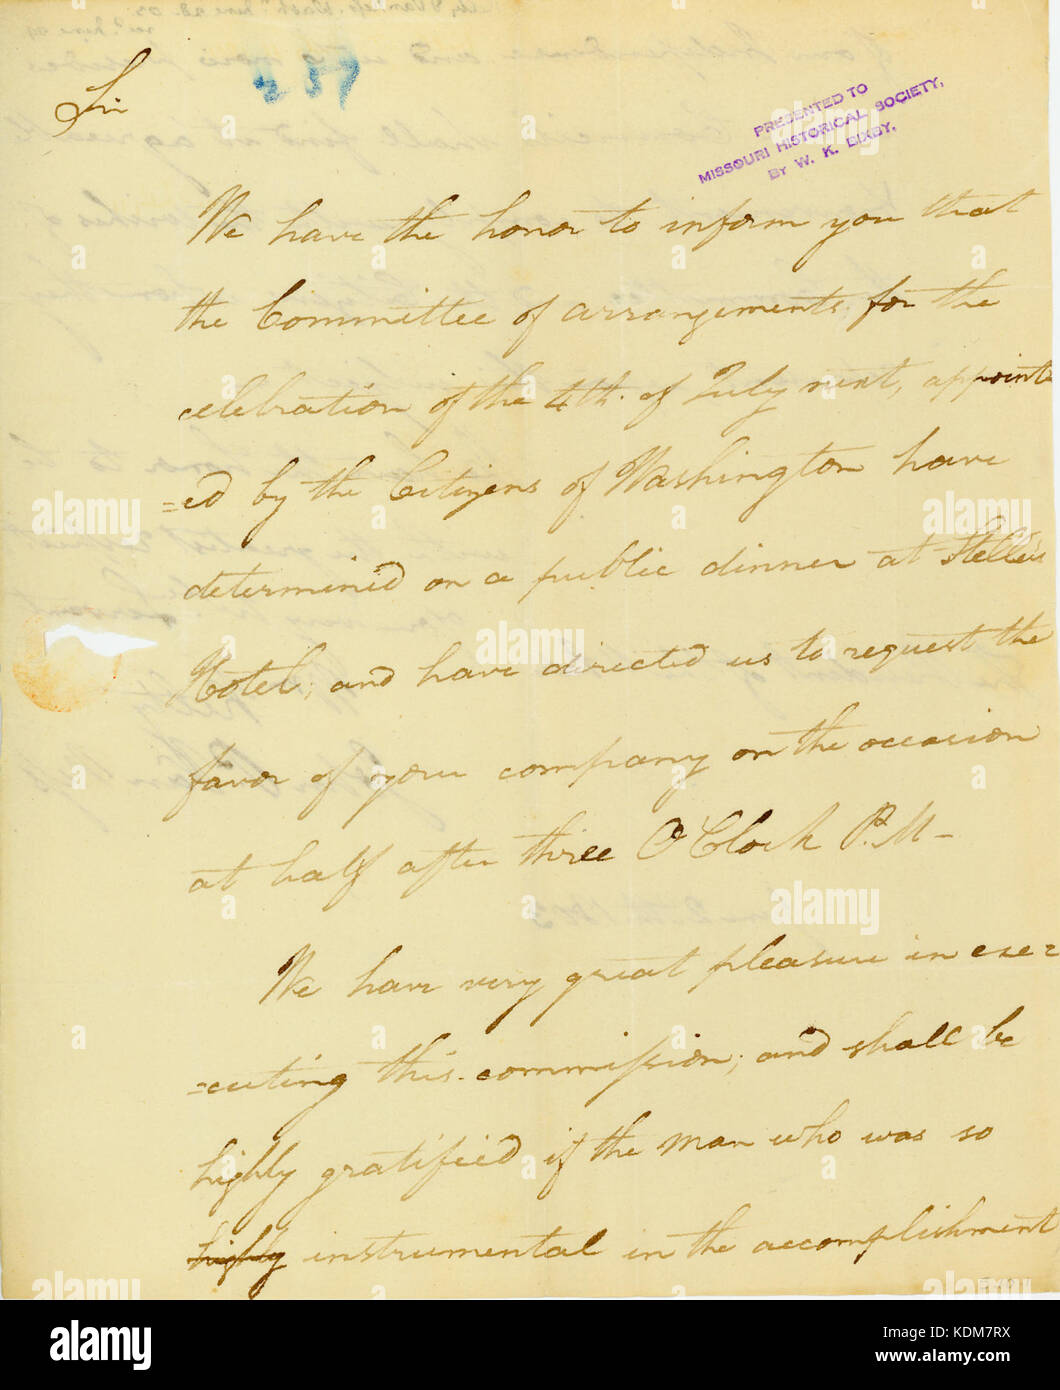 Sir
239
PRESENTED TO
MISSOURI HISTORICAL SOCIETY,
BY W. K. BIXBY.
We have the honor to inform you that
the Committee of arrangements for the
celebration of the 4th. of July next, appoint
=ed by the Citizens of Washington have
determined on a public dinner at Stelle's
Hotel; and have directed us to request the
favor of your company on the occasion
at half after three O'Clock P.M-
We have very great pleasure in exe=
=cuting this commission; and shall be
highly gratified if the man who was so
highly instrumental in the accomplishment
alamy
Image ID: KDM7RX
www.alamy.com